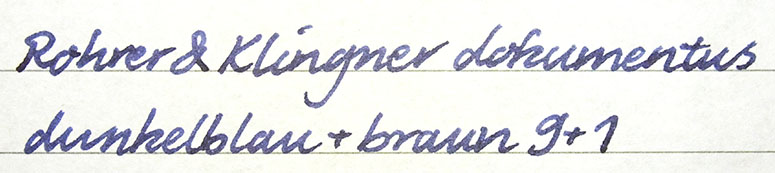 Rohrer & Klingner dokumentus
dunkelblau + braun 9+1